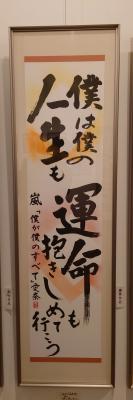 僕は僕の
人生も
運命も
抱きしめて
行こう
嵐「僕が僕のすべて」